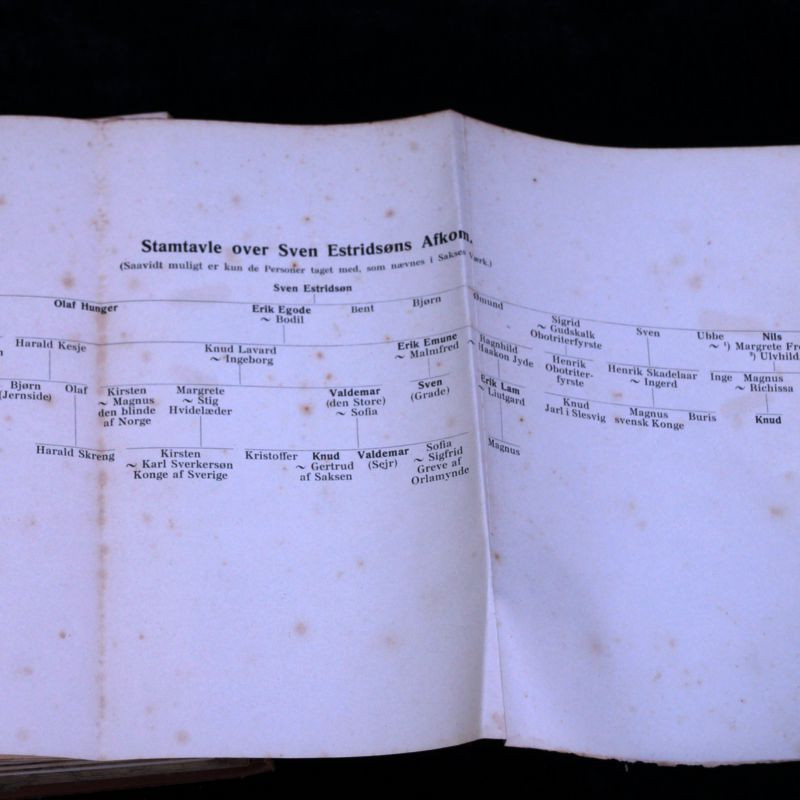 Stamtavle over Sven Estridsøns Afkom.
(Saavidt muligt er kun de Personer taget med, som nævnes i Sakses Værk.)
Sven Estridsøn
Olaf Hunger
Erik Egode
~ Bodil
Bent
Bjørn
Ømund
Sigrid
~ Gudskalk
Obotriterfyrste
Sven
Ubbe
Nils
~ ¹) Margrete Fre
²) Ulvhild
Harald Kesje
Knud Lavard
~ Ingeborg
Erik Emune
~ Malmfred
Ragnhild
~ Haakon Jyde
Henrik
Obotriter-
fyrste
Henrik Skadelaar
~ Ingerd
Inge
Magnus
~ Richissa
Bjørn
(Jernside)
Olaf
Kirsten
~ Magnus
den blinde
af Norge
Margrete
~ Stig
Hvidelæder
Valdemar
(den Store)
~ Sofia
Sven
(Grade)
Erik Lam
~ Liutgard
Knud
Jarl i Slesvig
Magnus
svensk Konge
Buris
Knud
Harald Skreng
Kirsten
~ Karl Sverkersøn
Konge af Sverige
Kristoffer
Knud
~ Gertrud
af Saksen
Valdemar
(Sejr)
Sofia
~ Sigfrid
Greve af
Orlamynde
Magnus